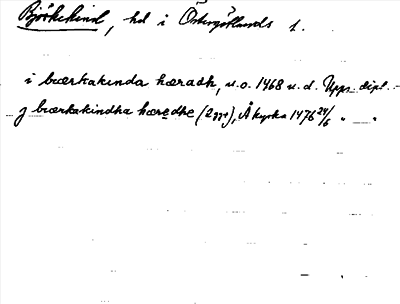 Björkekind, hd i Östergötlands l.
i bærkakinda hæradh, u.o. 1468 u.d. Upps. dipl.
j bærkakindha hæredhe (2 ggr), Å kyrka 1476 24/6 " "